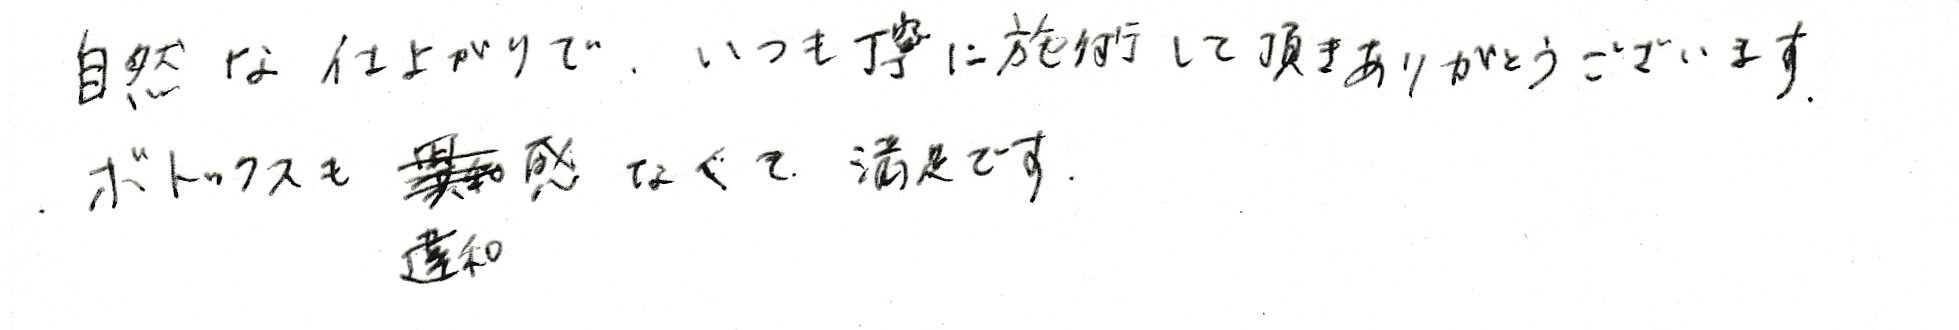 自然な仕上がりで、いつも丁寧に施術して頂きありがとうございます。
ボトックスも異和感なくて満足です。
違和